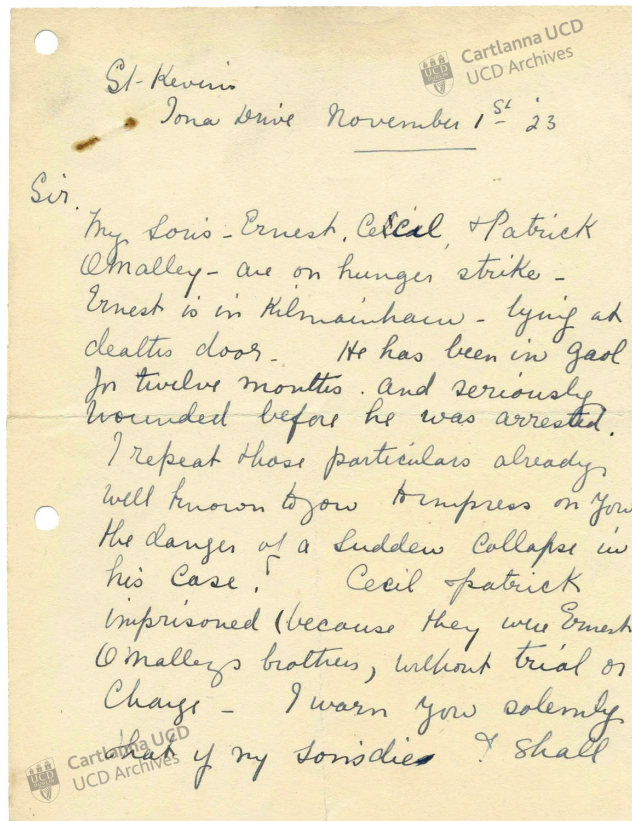 Cartlanna UCD
UCD Archives
St-Kevins
Iona Drive November 1st '23
Sir.
My sons - Ernest, Cecil, & Patrick
OMalley - are on hunger strike -
Ernest is in Kilmainham - lying at
deaths door - He has been in gaol
for twelve months. and seriously
wounded before he was arrested.
I repeat those particulars already
well known to you to impress on you
the danger of a sudden collapse in
his case. Cecil & patrick
imprisoned (because they were Ernest
O'Malleys brothers, without trial or
Charge - I warn you solemnly
that if my sons die I shall
Cartlanna UCD
UCD Archives